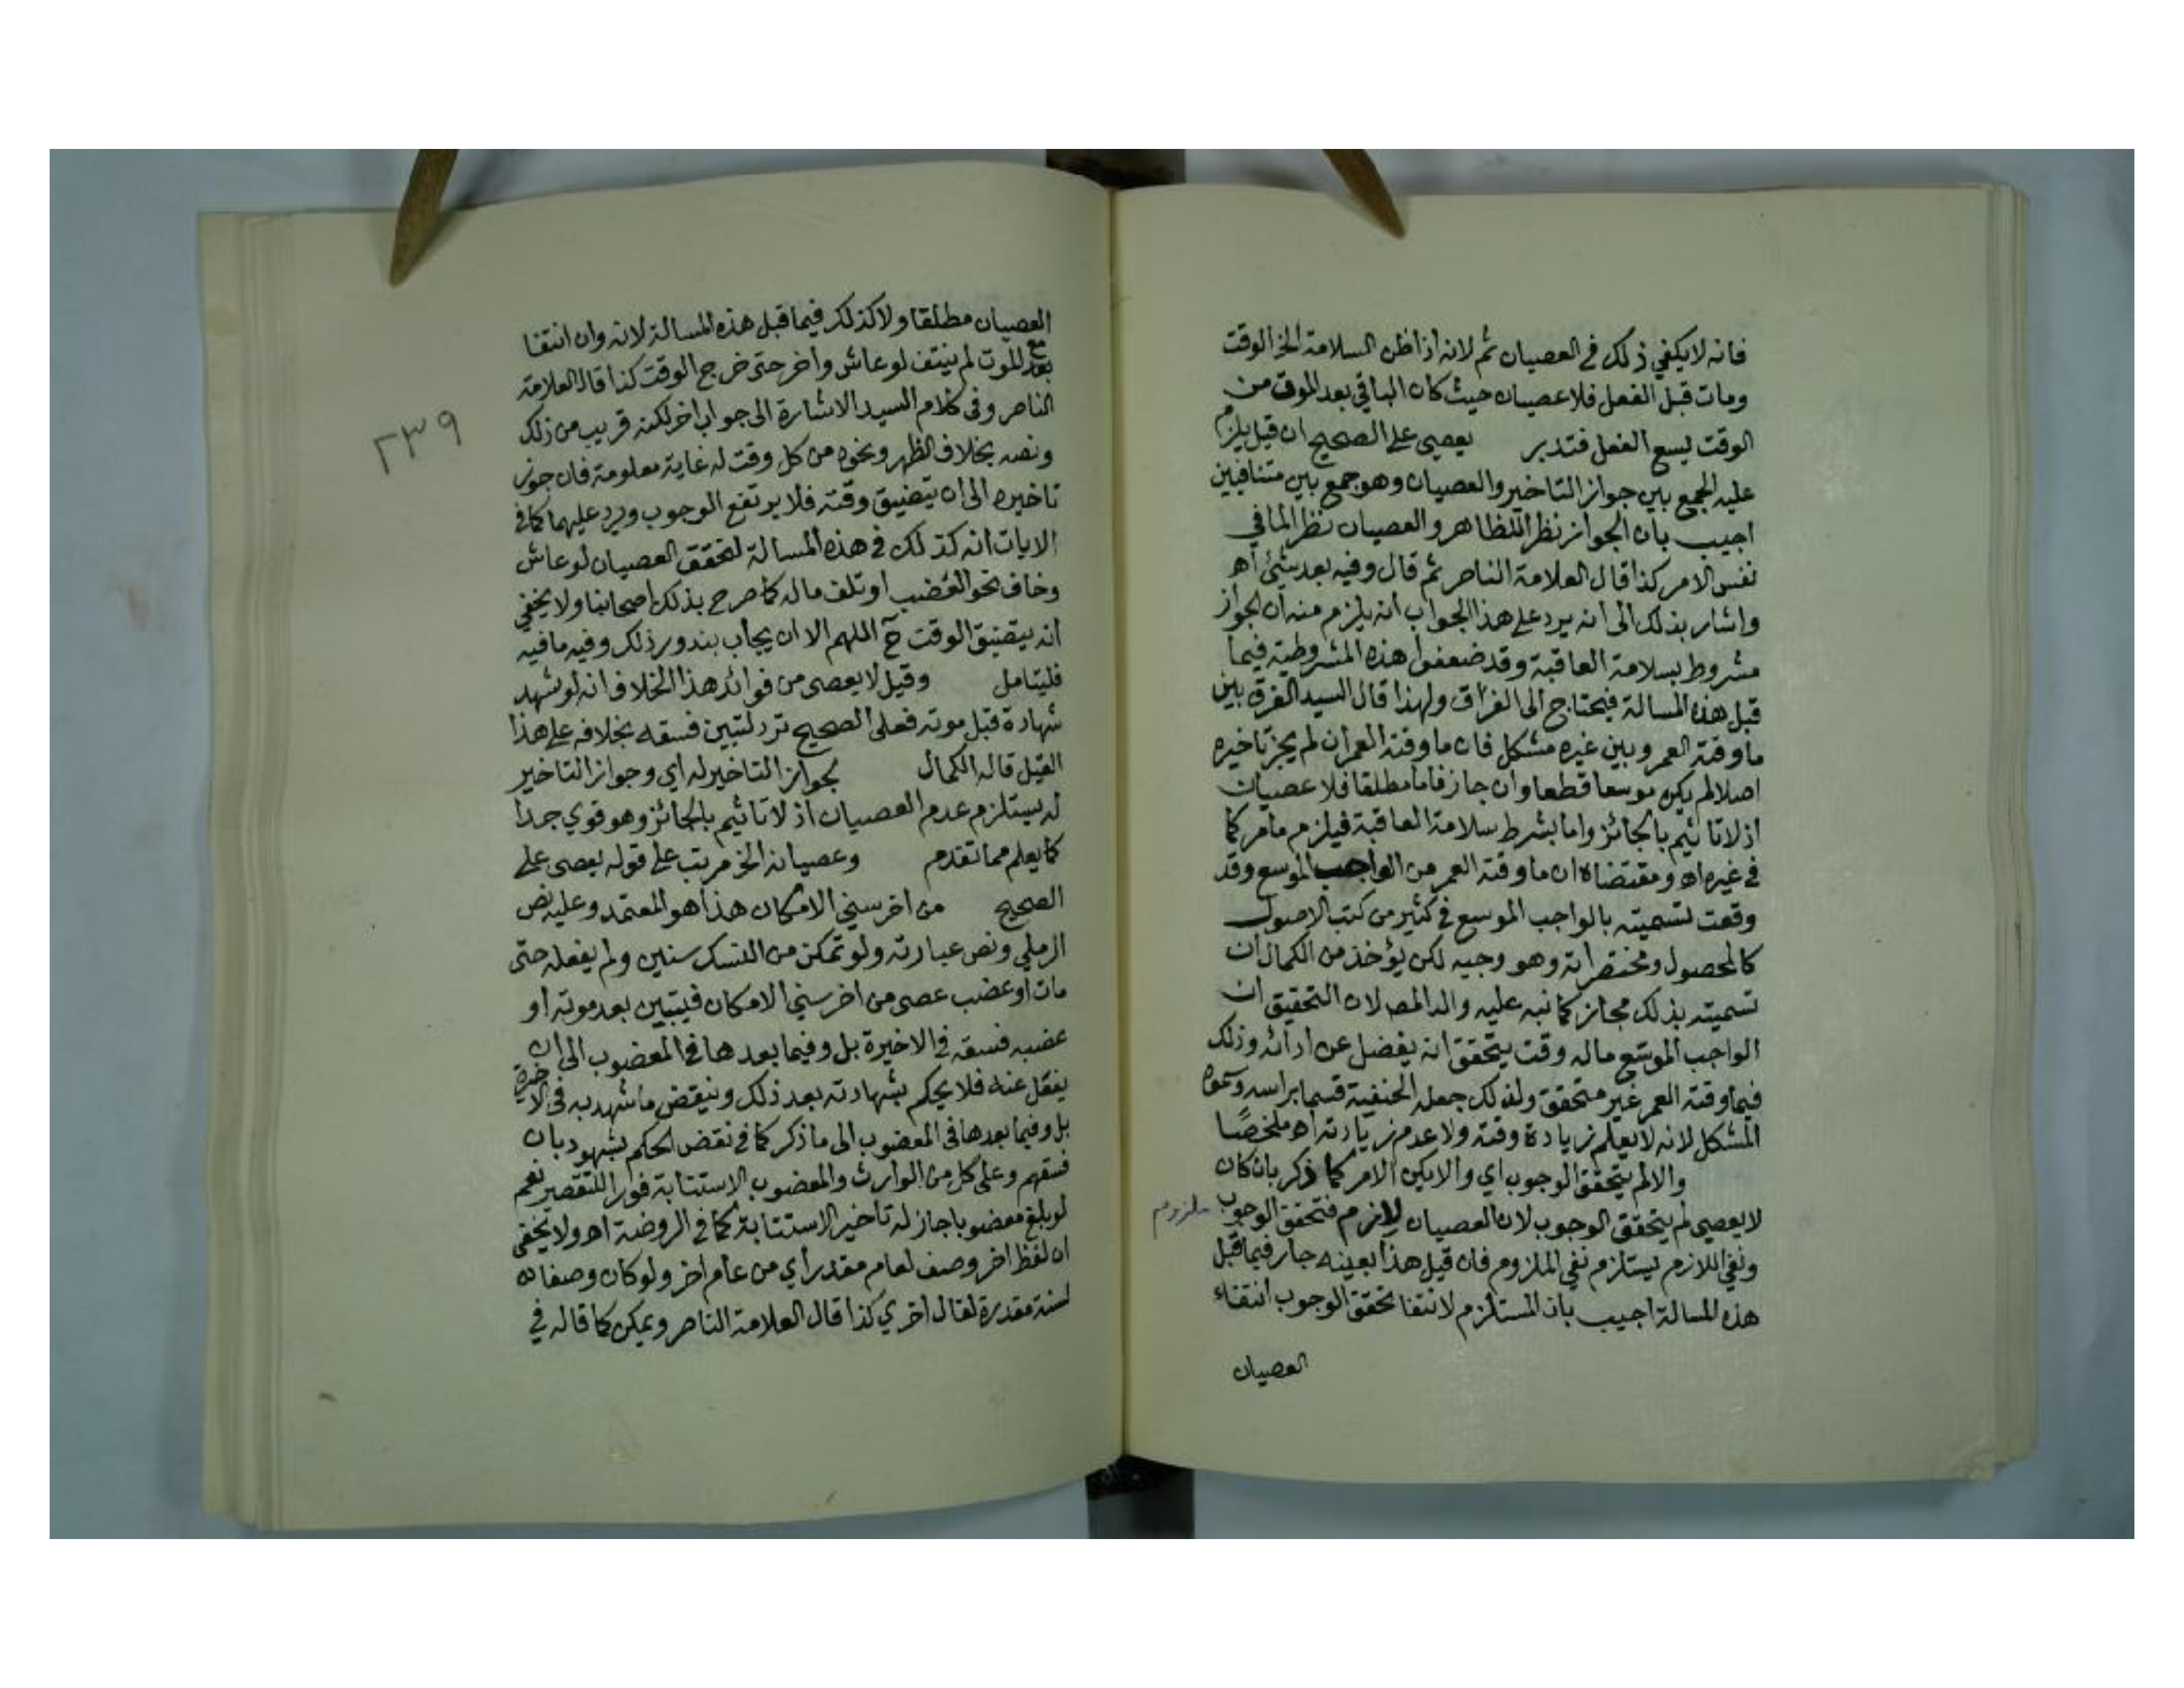 فانه لا يكفي ذلك في العصيان ثم لانه اذا ظن السلامة الخ الوقت
ومات قبل الفعل فلا عصيان حيث كان الباقي بعد الموت من
الوقت يسع الفعل فتدبر يعصي على الصحيح ان قيل يلزم
عليه الجمع بين جواز التاخير والعصيان وهو جمع بين متنافيين
اجيب بان الجواز نظرا للظاهر والعصيان نظرا لما في
نفس الامر كذا قال العلامة الناصر ثم قال وفيه بعد شيئ اه
واشار بذلك الى انه يرد على هذا الجواب انه يلزم منه ان الجواز
مشروط بسلامة العاقبة وقد ضعفوا هذه المشروطية فيما
قبل هذه المسالة فيحتاج الى الفراق ولهذا قال السيد الفرق بين
ما وقته العمر وبين غيره مشكل فان ما وقته العمر ان لم يجز تاخيره
اصلا لم يكن موسعا قطعا وان جاز فاما مطلقا فلا عصيان
اذ لا تاثيم بالجائز واما بشرط سلامة العاقبة فيلزم ما مر كما
في غيره اه ومقتضاه ان ما وقته العمر من الواجب الموسع وقد
وقعت تسميته بالواجب الموسع في كثير من كتب الاصول
كالمحصول ومختصراته وهو وجيه لكن يؤخذ من الكمال ان
تسميته بذلك مجاز كما نبه عليه والد المص لان التحقيق ان
الواجب الموسع ماله وقت يتحقق انه يفضل عن ادائه وذلك
فيما وقته العمر غير متحقق ولذلك جعله الحنفية قسما براسه وسموه
المشكل لانه لا يعلم زيادة وقته ولا عدم زيادته اه ملخصًا
والا لم يتحقق الوجوب اي والا يكن الامر كما ذكر بان كان
لا يعصي لم يتحقق الوجوب لان العصيان لازم فتحقق الوجوب ملزوم
ونفي اللازم يستلزم نفي الملزوم فان قيل هذا بعينه جار فيما قبل
هذه المسالة اجيب بان المستلزم لانتفا تحقق الوجوب انتفاء
العصيان
العصيان مطلقا ولا كذلك فيما قبل هذه المسالة لانه وان انتفا
مع الموت لم ينتف لو عاش واخر حتى خرج الوقت كذا قال العلامة
الناصر وفي كلام السيد الاشارة الى جواب اخر لكنه قريب من ذلك
٢٣٩
ونصه بخلاف الظهر ونحوه من كل وقت له غاية معلومة فان جوز
تاخيره الى ان يتضيق وقته فلا يرتفع الوجوب ويرد عليهما كما في
الايات انه كذلك في هذه المسالة لتحقق العصيان لو عاش
وخاف نحو العضب او تلف ماله كما صرح بذلك اصحابنا ولا يخفي
انه يتضيق الوقت ح اللهم الا ان يجاب بندور ذلك وفيه ما فيه
فليتامل وقيل لا يعصى من فوائد هذا الخلاف انه لو شهد
شهادة قبل موته فعلى الصحيح ترد لتبين فسقه بخلافه على هذا
القيل قاله الكمال لجواز التاخير له اي وجواز التاخير
له يستلزم عدم العصيان اذ لا تاثيم بالجائز وهو قوي جدا
كما يعلم مما تقدم وعصيانه الخ مرتب على قوله يعصى على
الصحيح من اخر سني الامكان هذا هو المعتمد وعليه نص
الرملي ونص عبارته ولو تمكن من النسك سنين ولم يفعله حتى
مات او عضب عصى من اخر سني الامكان فيتبين بعد موته او
عضبه فسقه في الاخيرة بل وفيما بعدها في المعضوب الى ان
يفعل عنه فلا يحكم بشهادته بعد ذلك وينقض ما شهد به في الاخيرة
بل وفيما بعدها في المعضوب الى ما ذكر كما في نقض الحكم بشهود بان
فسقهم وعلى كل من الوارث والمعضوب الاستنابة فورا للتقصير نعم
لو بلغ معضوبا جاز له تاخير الاستنابة كما في الروضة اه ولا يخفى
ان لفظ اخر وصف لعام مقدر اي من عام اخر ولو كان وصفا له
لسنة مقدرة لقال اخري كذا قال العلامة الناصر ويمكن كما قاله في